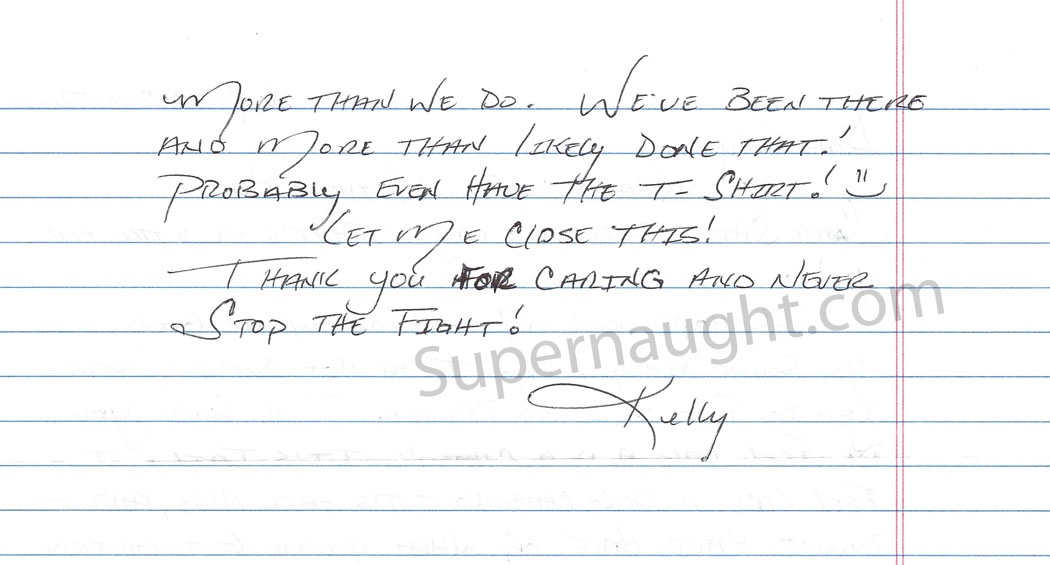 MORE THAN WE DO. WE'VE BEEN THERE
AND MORE THAN LIKELY DONE THAT!
PROBABLY EVEN HAVE THE T-SHIRT!
LET ME CLOSE THIS!
THANK YOU FOR CARING AND NEVER
STOP THE FIGHT!
Supernaught.com
Kelly